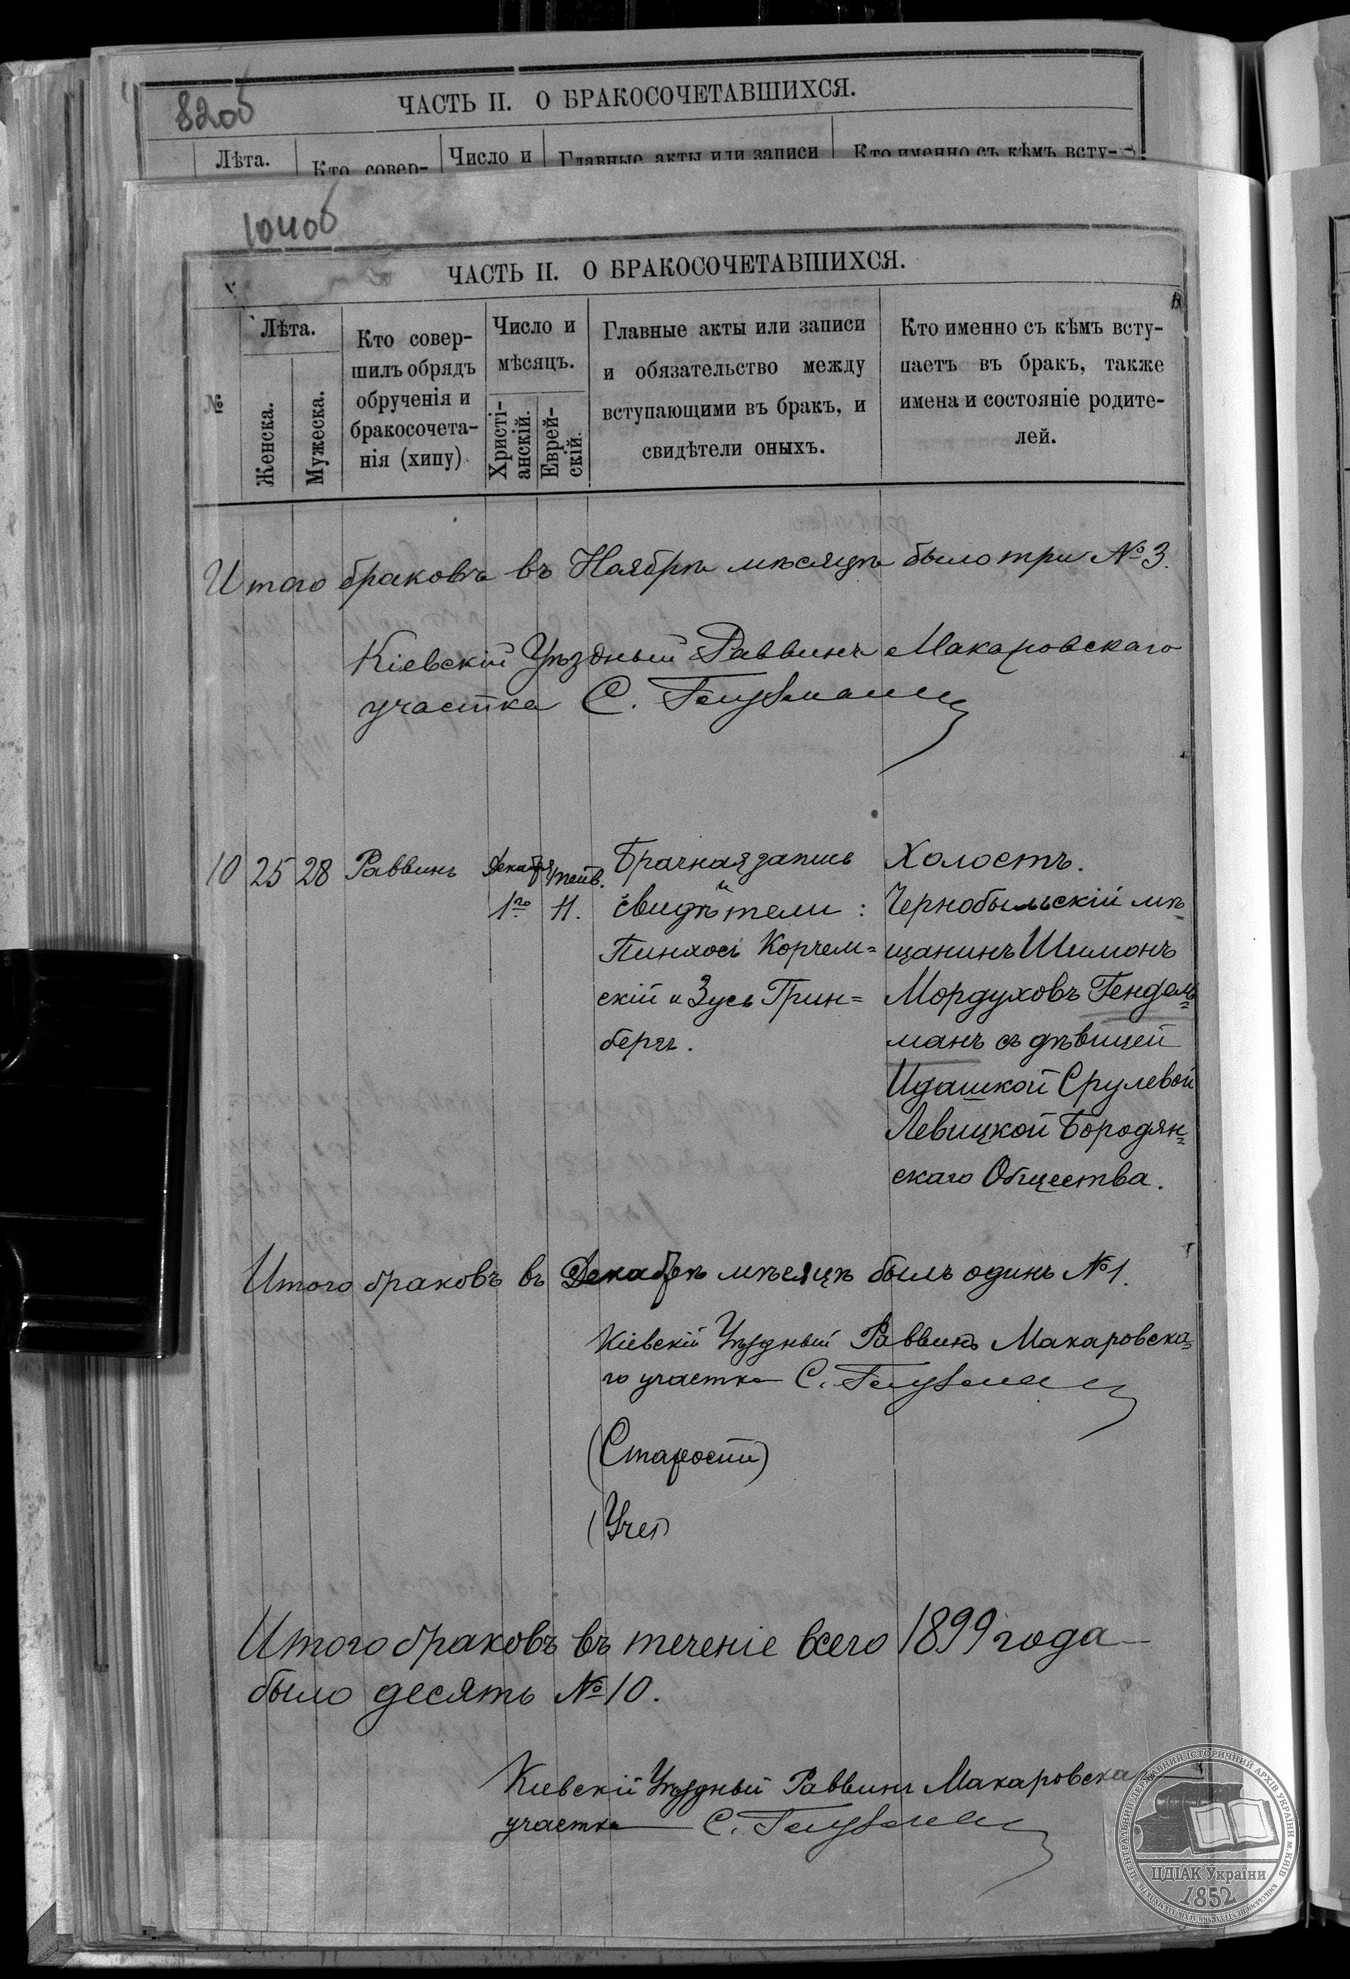 820об
ЧАСТЬ II. О БРАКОСОЧЕТАВШИХСЯ.
Лѣта.
Кто совер-
Число и
Главные акты или записи
Кто именно съ кѣмъ всту-
104об
ЧАСТЬ II. О БРАКОСОЧЕТАВШИХСЯ.
№
Лѣта.
Женска.
Мужеска.
Кто совер-
шилъ обрядъ
обрученія и
бракосочета-
нія (хипу)
Число и
мѣсяцъ.
Христі-
анскій.
Еврей-
скій.
Главные акты или записи
и обязательство между
вступающими въ бракъ, и
свидѣтели оныхъ.
Кто именно съ кѣмъ всту-
паетъ въ бракъ, также
имена и состояніе родите-
лей.
Итого браковъ въ Ноябрѣ мѣсяцѣ было три №3.
Кіевскій Уѣздный Раввинъ Макаровскаго
участка С.
10 25 28 Раввинъ
Декабря
1го
Тейв.
11.
Брачная запись
и
свидѣтели:
Пинхосъ Корчем=
скій и Зусь Грин=
бергъ.
Холостъ.
Чернобыльскій мѣ=
щанинъ Шимонъ
Мордуховъ Гендель=
манъ съ дѣвицей
Идашкой Срулевой
Левицкой Бородян=
скаго Общества.
Итого браковъ въ Декабрѣ мѣсяцѣ былъ одинъ №1.
Кіевскій Уѣздный Раввинъ Макаровска=
го участка С.
(Старости)
(Учен)
Итого браковъ въ теченіе всего 1899 года
было десять №10.
Кіевскій Уѣздный Раввинъ Макаровска
участка С.
ЦЕНТРАЛЬНИЙ ДЕРЖАВНИЙ ІСТОРИЧНИЙ АРХІВ УКРАЇНИ М. КИЇВ
ЦДІАК України
1852